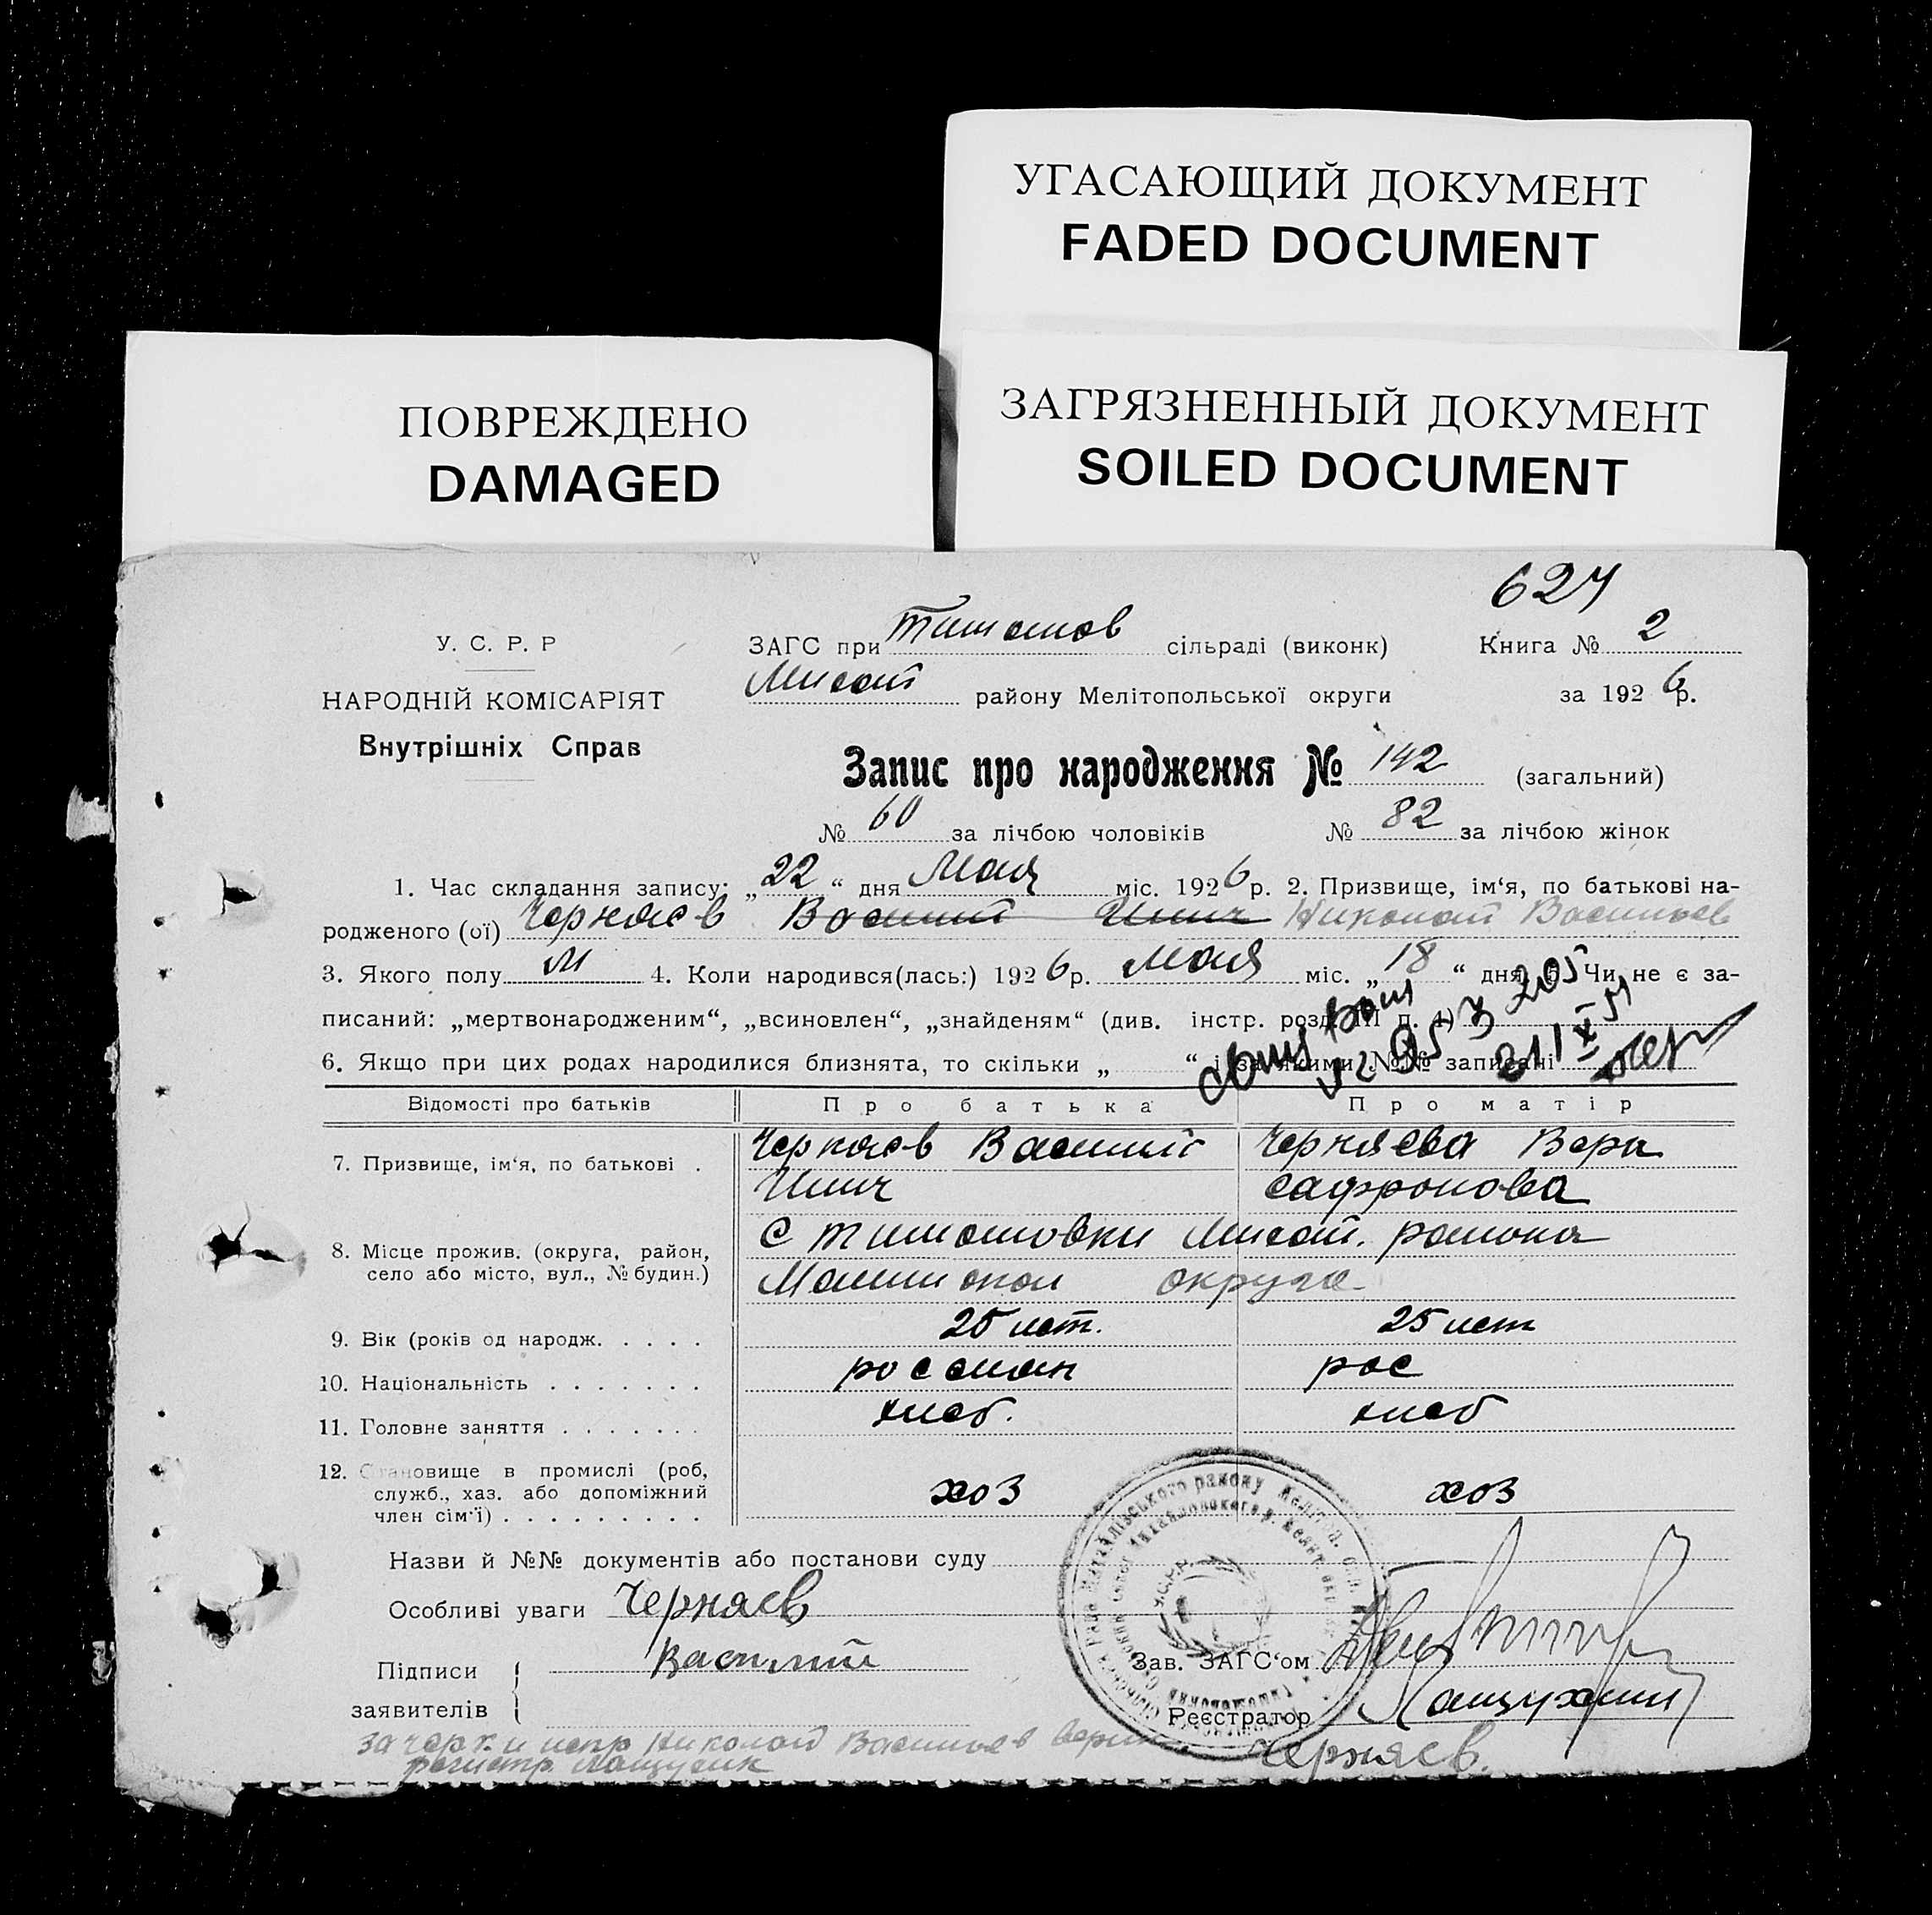 УГАСАЮЩИЙ ДОКУМЕНТ
FADED DOCUMENT
ПОВРЕЖДЕНО
DAMAGED
ЗАГРЯЗНЕННЫЙ ДОКУМЕНТ
SOILED DOCUMENT
624
У. С. Р. Р
НАРОДНІЙ КОМІСАРІЯТ
Внутрішніх Справ
ЗАГС при Тимошов сільраді (виконк) Книга № 2
району Мелітопольської округи за 1926 р.
Запис про народження № 142 (загальний)
№ 60 за лічбою чоловіків № 82 за лічбою жінок
1. Час складання запису: „22“ дня Мая міс. 1926 р. 2. Призвище, ім‘я, по батькові на-
родженого (ої) Черняев Василий Ильич Николай Васильев
3. Якого полу М 4. Коли народився(лась:) 1926 р. Мая міс. „18“ дня 5. Чи не є за-
писаний: „мертвонародженим“, „всиновлен“, „знайденям“ (див. інстр. розд. III п. 1)
6. Якщо при цих родах народилися близнята, то скільки „ “ і за якими №№ записані
Відомості про батьків Про батька Про матір
7. Призвище, ім‘я, по батькові . Черняев Василий Ильич Черняева Вера Сафронова
8. Місце прожив. (округа, район, село або місто, вул., № будин.) с Тимошовки района
округа
9. Вік (років од народж. . . . . 25 лет. 25 лет
10. Національність . . . . . . . россиян рос
11. Головне заняття . . . . . . . хлеб. хлеб
12. Становище в промислі (роб, служб., хаз. або допоміжний член сім‘ї) . . . . . . . . . хоз хоз
Назви й №№ документів або постанови суду
Особливі уваги Черняев
Підписи заявителів Василий
Зав. ЗАГС‘ом
Реєстратор
зачерк. и испр Николай Васильев верно Черняев.
регистр.